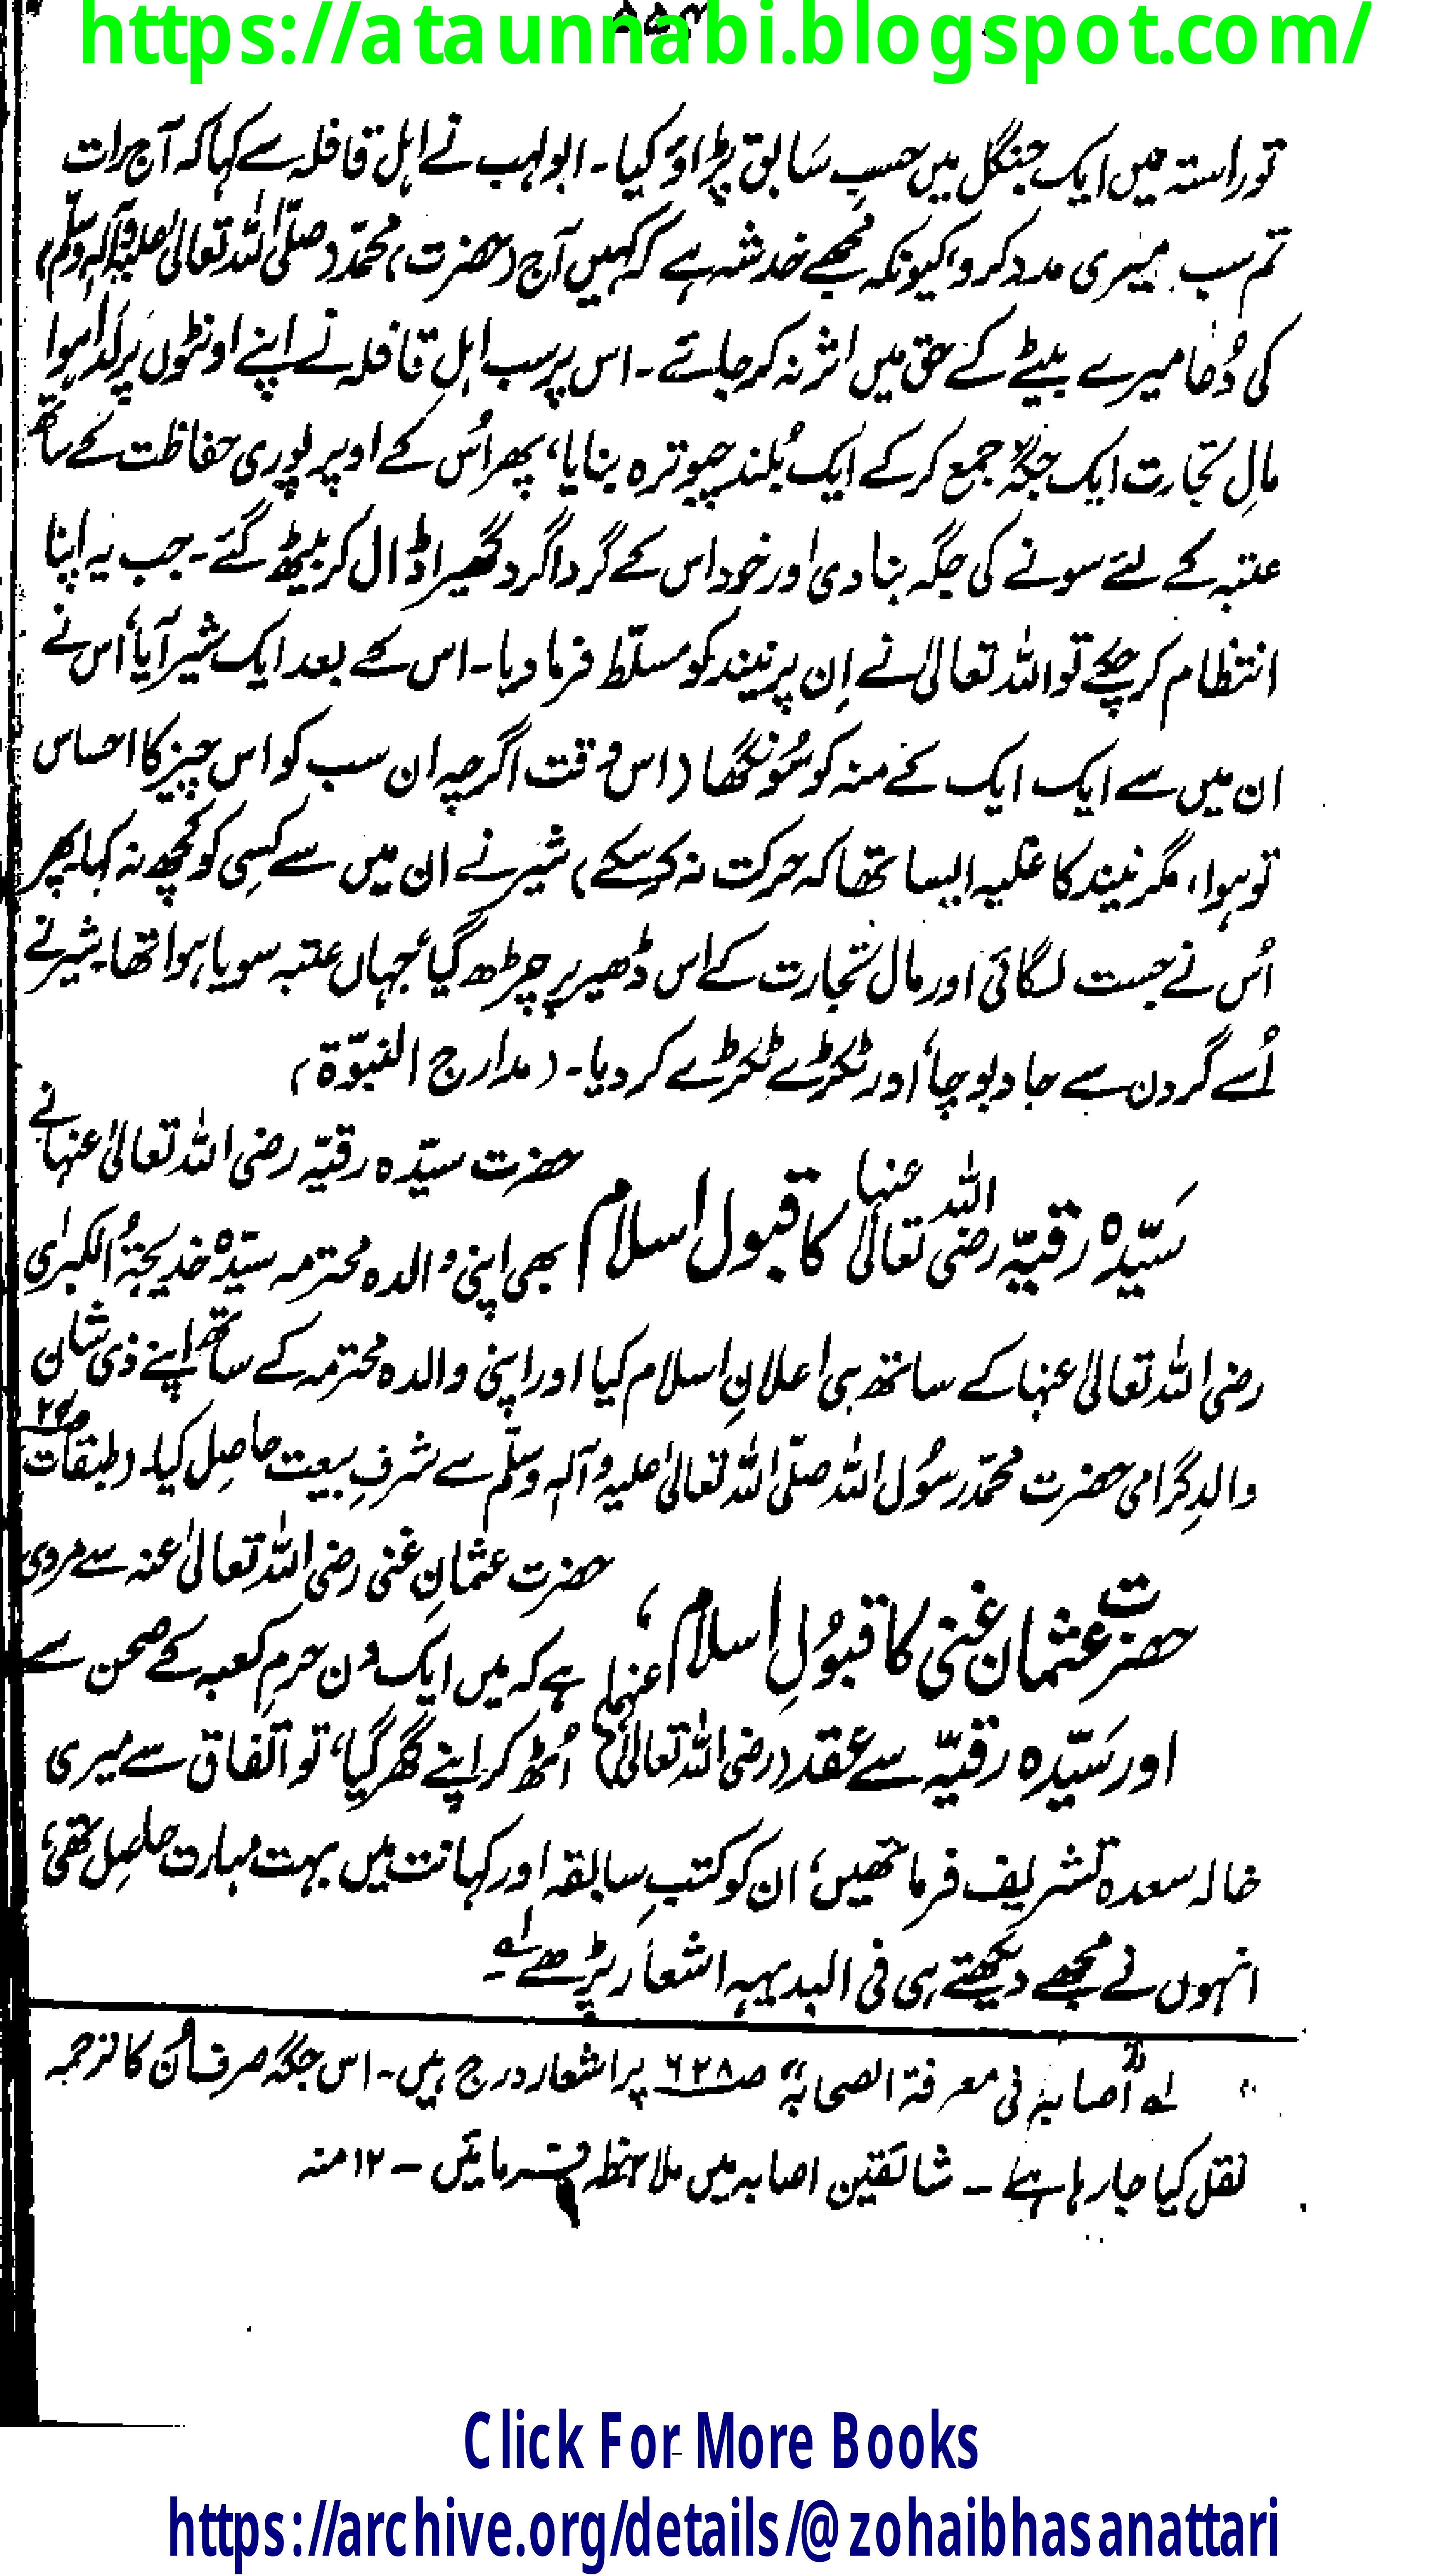 https://ataunnabi.blogspot.com/
تو راستہ میں ایک جنگل میں حسبِ سَابق پڑاؤ کیا۔ ابولہب نے اہل قافلہ سے کہا کہ آج رات
تم سب میری مدد کرو، کیونکہ مجھے خدشہ ہے کہ کہیں آج (حضرت) محمّد (صلّی اللہ تعالیٰ علیہ وآلہ وسلّم)
کی دُعا میرے بیٹے کے حق میں اثر نہ کر جائے۔ اس پر سب اہلِ قافلہ نے اپنے اونٹوں پر لَدا ہوا
مالِ تجارت ایک جگہ جمع کر کے ایک بُلند چبوترہ بنایا، پھر اُس کے اوپر پوری حفاظت کے ساتھ
عتبہ کے لئے سونے کی جگہ بنا دی اور خود اس کے گردا گرد گھیرا ڈال کر بیٹھ گئے۔ جب یہ اپنا
انتظام کر چکے تو اللہ تعالیٰ نے اِن پر نیند کو مسلّط فرما دیا۔ اس کے بعد ایک شیر آیا، اس نے
ان میں سے ایک ایک کے منہ کو سُونگھا (اس وقت اگرچہ ان سب کو اس چیز کا احساس
تو ہوا، مگر نیند کا غلبہ ایسا تھا کہ حرکت نہ کر سکے) شیر نے ان میں سے کسِی کو کچھ نہ کہا، پھر
اُس نے جست لگائی اور مال تجارت کے اس ڈھیر پر چڑھ گیا، جہاں عتبہ سویا ہوا تھا۔ شیر نے
اُسے گردن سے جا دبوچا، اور ٹکڑے ٹکڑے کر دیا۔ (مدارج النبوّۃ)
سَیّدہ رقیّہ رضی اللہ تعالیٰ عنہا کا قبول اسلام
حضرت سیّدہ رقیّہ رضی اللہ تعالیٰ عنہا نے
بھی اپنی والدہ محترمہ سیّدہ خدیجۃُ الکبرٰی
رضی اللہ تعالیٰ عنہا کے ساتھ ہی اعلانِ اسلام کیا اور اپنی والدہ محترمہ کے ساتھ اپنے ذی شان
والدِ گرامی حضرت محمّد رسُول اللہ صلّی اللہ تعالیٰ علیہ وآلہ وسلّم سے شرفِ بیعت حاصِل کیا۔ (طبقات
حضرت عثمان غنی کا قبُولِ اسلام،
اور سَیّدہ رقیّہ سے عقد (رضی اللہ تعالیٰ عنہما)
حضرت عثمانِ غنی رضی اللہ تعالیٰ عنہ سے مروی
ہے کہ میں ایک دن حرمِ کعبہ کے صحن سے
اُٹھ کر اپنے گھر گیا، تو اتفاق سے میری
خالہ سعدہ تشریف فرما تھیں، ان کو کتبِ سابقہ اور کہانت میں بہت مہارت حاصِل تھی،
انہوں نے مجھے دیکھتے ہی فی البدیہہ اشعار پڑھے لہ
لہ "اصابہ فی معرفۃ الصحابہ" صـ ۶۲۸ پر اشعار درج ہیں۔ اس جگہ صرف اُن کا ترجمہ
نقل کیا جا رہا ہے ــ شائقین اصابہ میں ملاحظہ فرمائیں ــ ۱۲ منہ
Click For More Books
https://archive.org/details/@zohaibhasanattari